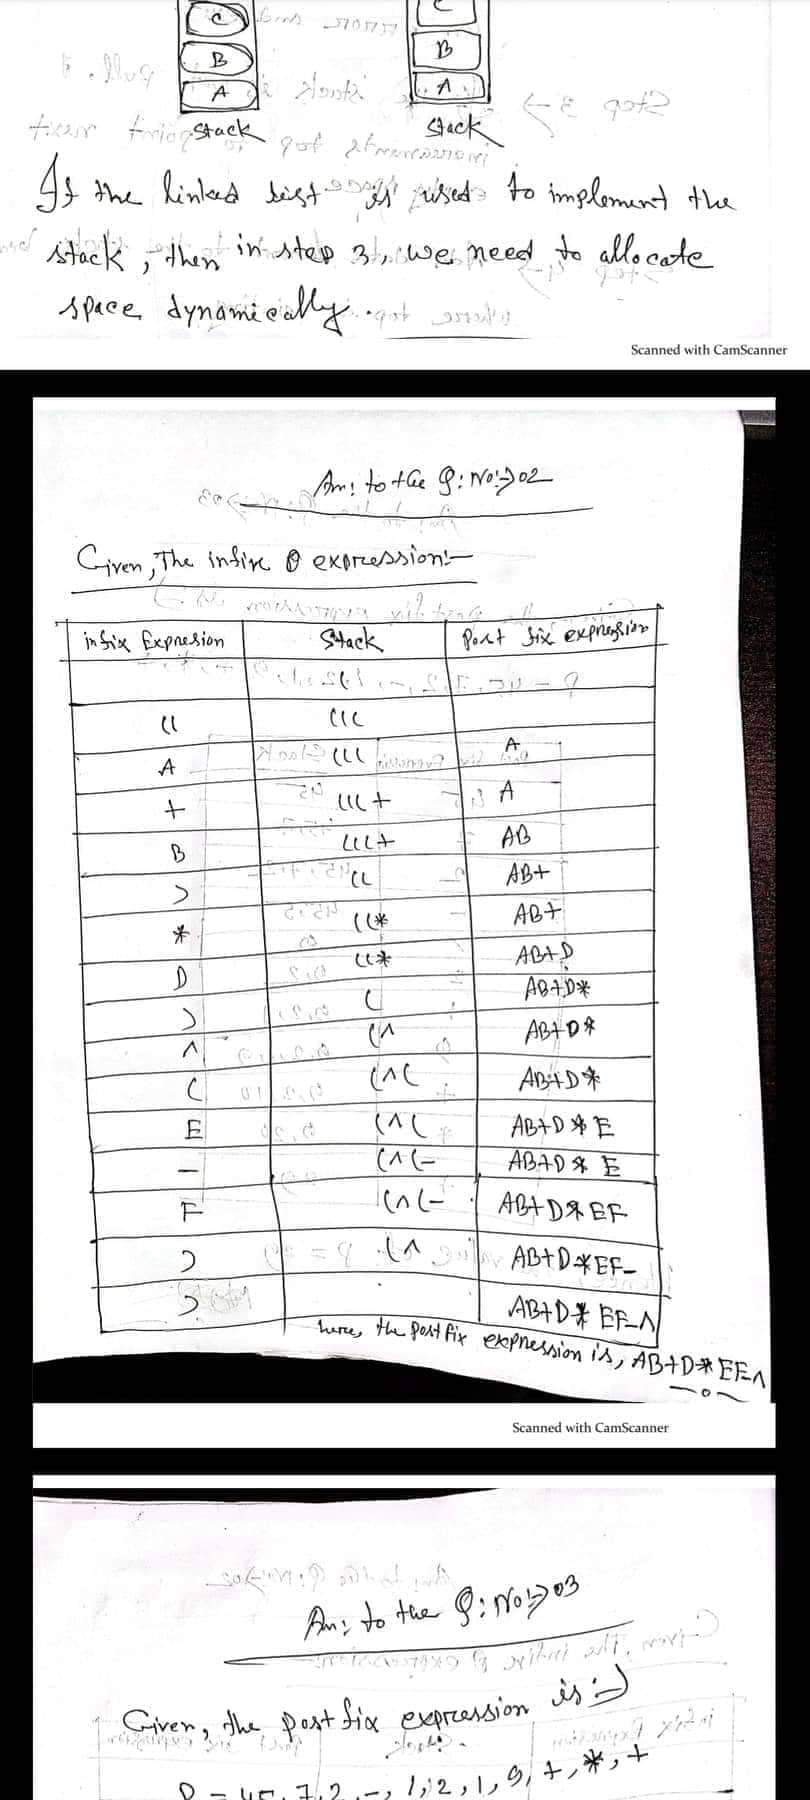 C
C
B
B
A
A
Stack
Stack
If the linked list is used to implement the
stack, then in step 3, we need to allocate
space dynamically.
Scanned with CamScanner
Ans to the Q: No:-) 02
Given, The infix expression:-
infix Expresion Stack Post fix expression
(( (((
A ((( A
+ (((+ A
B (((+ AB
) (( AB+
* ((* AB+
D ((* AB+D
) ( AB+D*
^ (^ AB+D*
( (^( AB+D*
E (^( AB+D*E
- (^(- AB+D*E
F (^(- AB+D*EF
) (^ AB+D*EF-
) AB+D*EF-^
here, the post fix expression is, AB+D*EF-^
Scanned with CamScanner
Ans to the Q: No:-) 03
Given, the post fix expression is :-)
P = 45, 7, 2, -, 1, 2, 1, 9, +, *, +